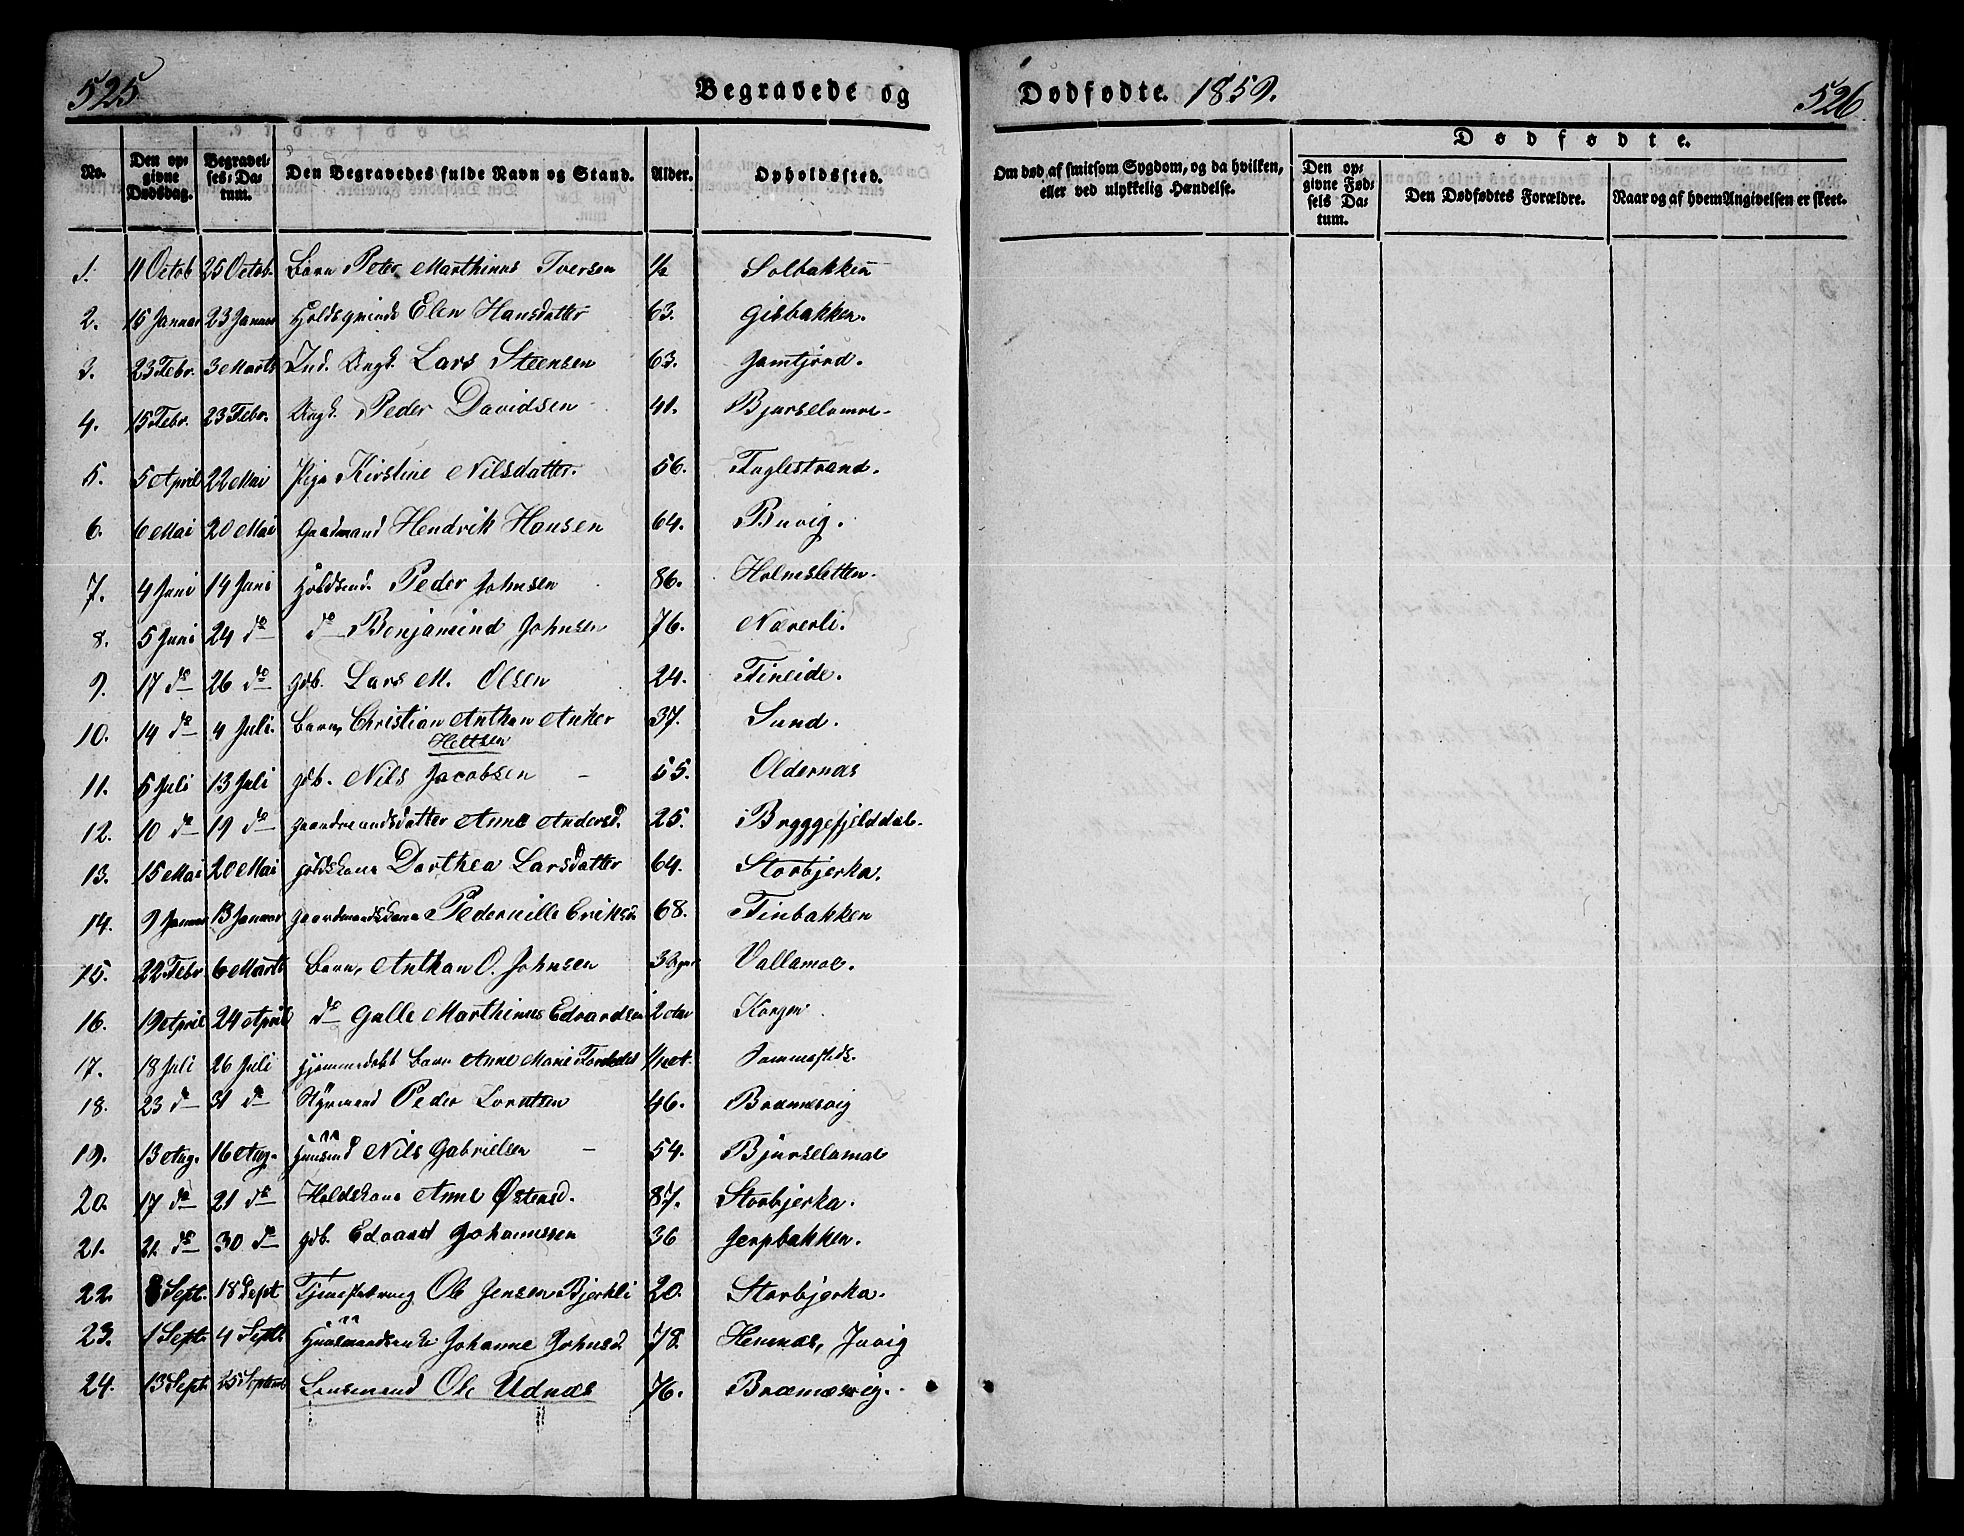 525
Begravede og
Dødfødte. 1859.
526
No.
Den opgivne Dødsdag.
Begravelses-Datum.
Den Begravedes fulde Navn og Stand.
Alder.
Opholdssted.
Om død af smitsom Sygdom, og da hvilken, eller ved ulykkelig Hændelse.
Dødfødte.
Den opgivne Fødsels Datum.
Den Dødfødtes Forældre.
Naar og af hvem Angivelsen er skeet.
1. 11 Octob 25 Octob. Barn Peter Marthinus Iversen ½ Solbakken
2. 15 Januar 23 Januar Holdsqvinde Elen Hansdatter 63. Gisbakken.
3. 23 Febr. 3 Marts Ind. Ungk. Lars Steensen 63. Jamtjord.
4. 15 Febr. 23 Febr. Ungk. Peder Davidsen 41. Bjurselamoe
5. 5 April 22 Mai Pige Kirstine Nilsdatter. 56. Fuglestrand.
6. 6 Mai 20 Mai Gaardmand Hendrik Hansen 64. Buvig.
7. 4 Juni 14 Juni Holdsmd. Peder Johnsen 86. Holmsletten.
8. 5 Juni 24 do do Benjamind Johnsen 76. Næverli.
9. 17 do 26 do gdb. Lars M. Olsen 24. Fineide.
10. 14 do 4 Juli. Barn, Christian Anthon Anker 37. Sund.
Heltzen
11. 5 Juli 13 Juli gdb. Nils Jacobsen 55. Oldernæs
12. 10 do 19 do Gaardmandsdatter Anne Andersd. 25. Bryggefjelddal.
13. 15 Mai 20 Mai Holdskone Dorthea Larsdatter 64. Storbjerka.
14. 9 Januar 13 Januar Gaardmandskone Pedernille Eriksd 68. Finbakken
15. 22 Febr. 6 Marts Barn, Anthon O. Johnsen 3 Vallamoe.
16. 19 April 24 April do Marthinus Edvardsen 2 Korgen
17. 18 Juli 26 Juli hjemmedøbt Barn Anne Marie
18. 23 do 31 do Styrmand Peder Lorntsen 46. Bramesvig
19. 13 Aug. 16 Aug. Huusmd Nils Gabrielsen 54. Bjurselamoe
20. 17 do 21 do Holdskone Anne Østensd. 87. Storbjerka.
21. 21. do 30 do gdb. Edvard Johannessen 36 Jerpbakken.
22. 8 Sept. 18 Sept Tjenestedreng Ole Jensen Bjerkli 20. Storbjerka.
23. 1 Septr. 4 Septr. Huusmandsenke Johanne Johnsd 78. Hemnæs, Juvig
24. 13 Sept. 25 Septemb Lensmand Ole Udnæs 76. Bramesvig.